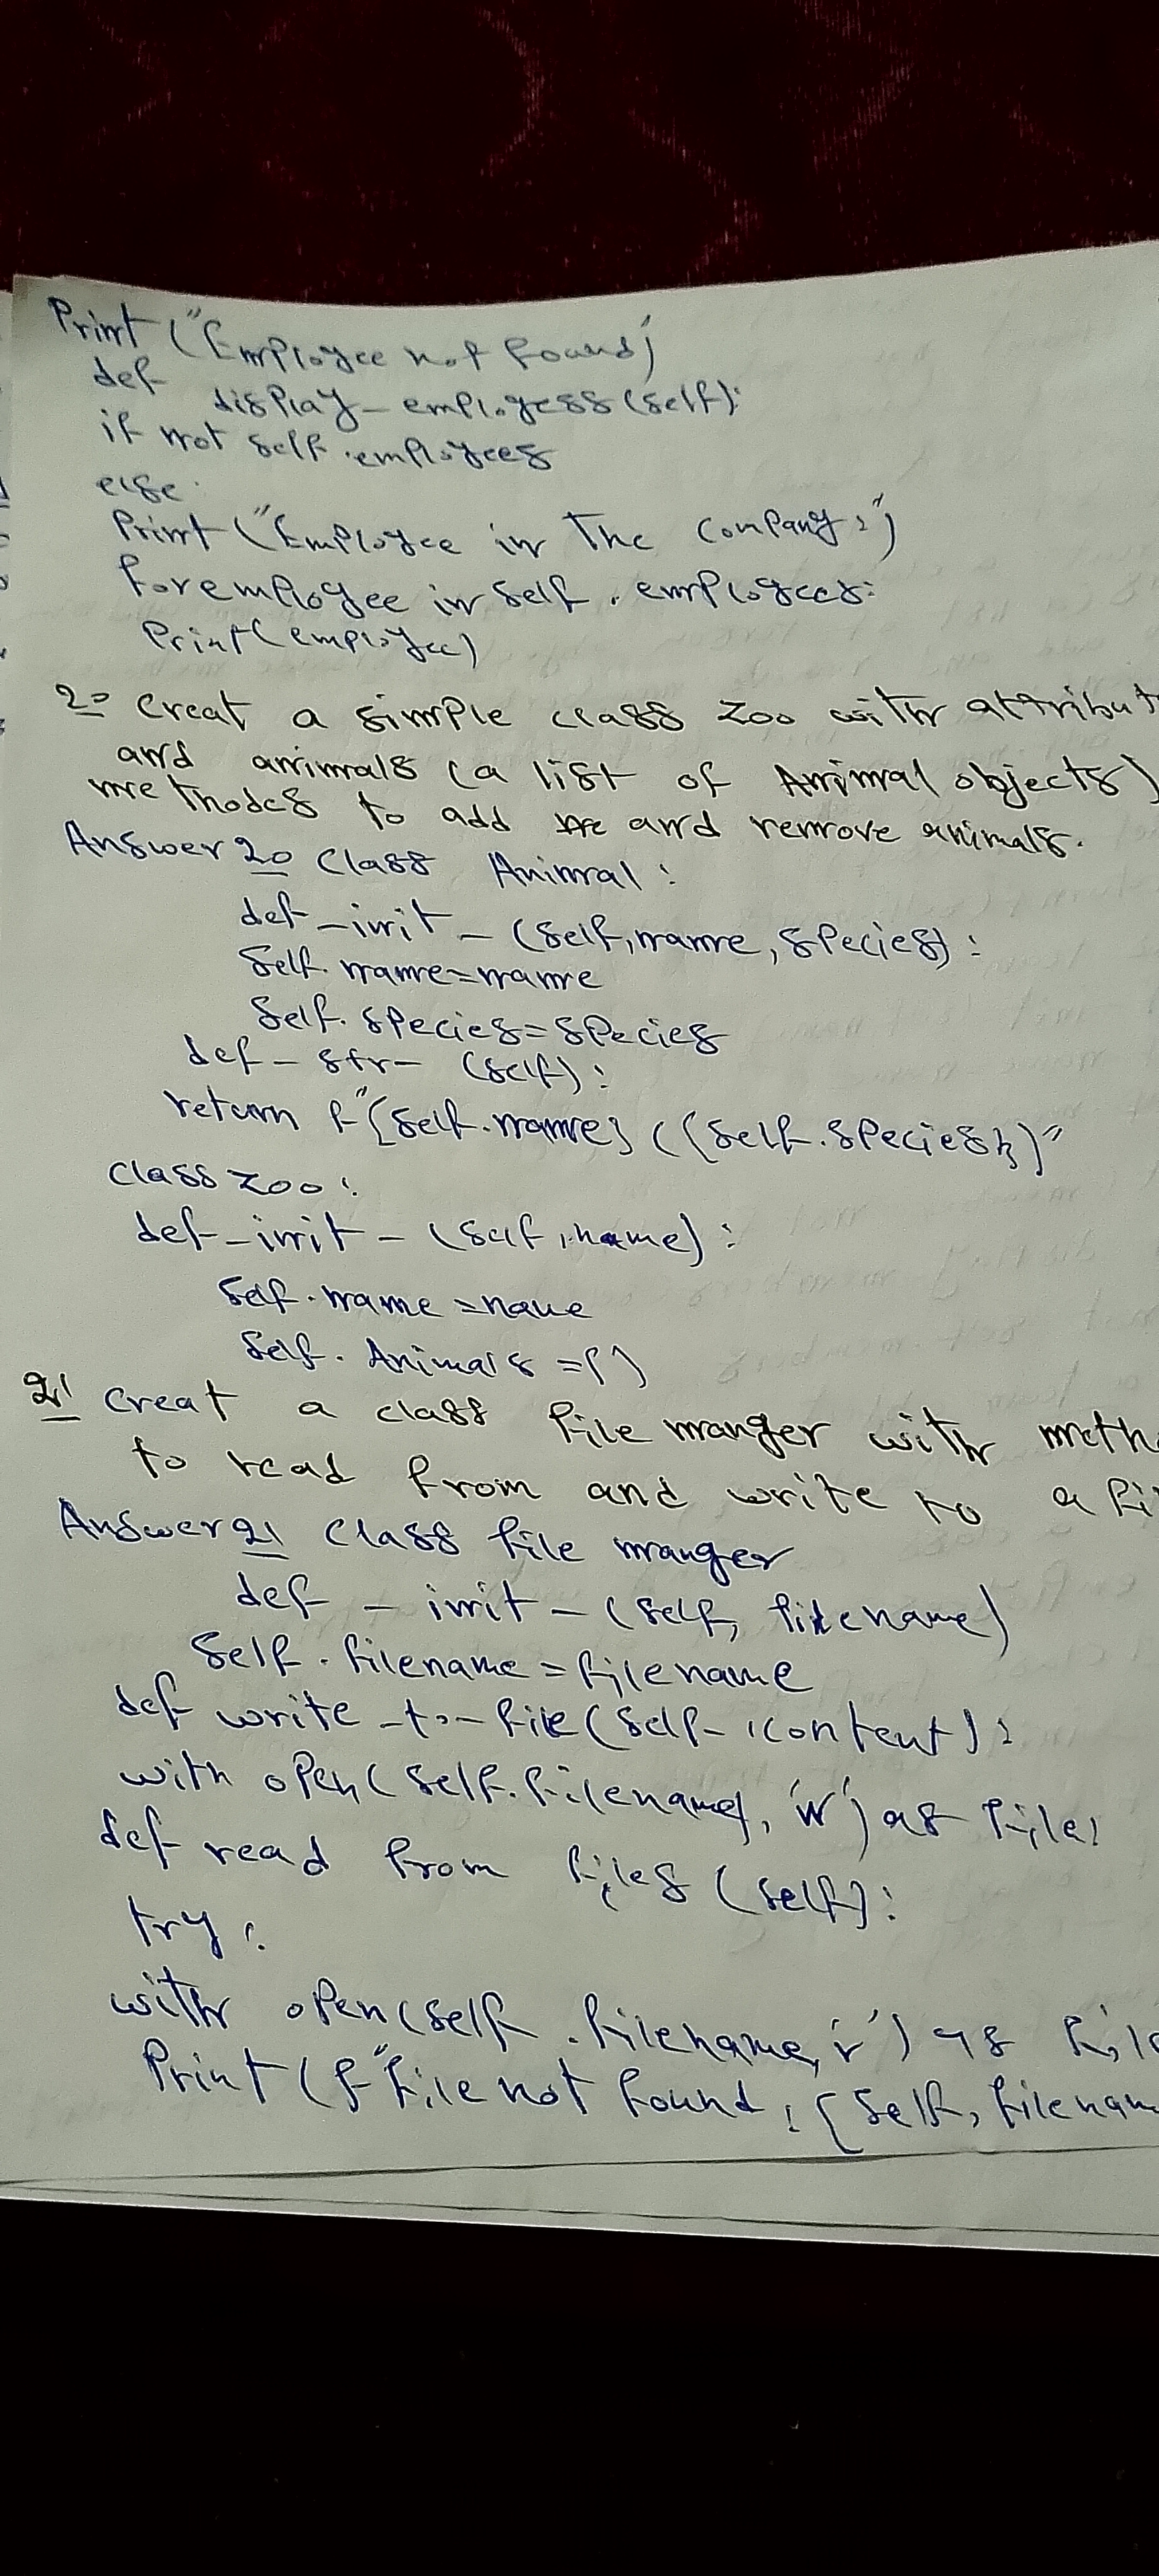 Print ("Employee not found)
def display_employess (self):
if not self.employees
else:
Print ("Employee in The Company:")
for employee in self.employees:
Print (employee)
20 Creat a simple class Zoo with attribut
and animals (a list of Animal objects)
methodes to add and remove animals.
Answer 20 Class Animal:
def _init_ (self, name, species):
Self.name=name
Self.species=species
def _str_ (self):
return f"{self.name} ({self.species})"
Class Zoo:
def _init_ (self, name):
Self.name=name
Self.Animals=[]
21 Creat a class file manger with meth
to read from and write to a fi
Answer 21 Class file manger
def _init_ (self, filename)
Self.filename=filename
def write_to_file (self, content):
with open (self.filename, 'w') as file:
def read from files (self):
try:
with open (self.filename, 'r') as file
Print (f"file not found: {self, filenam